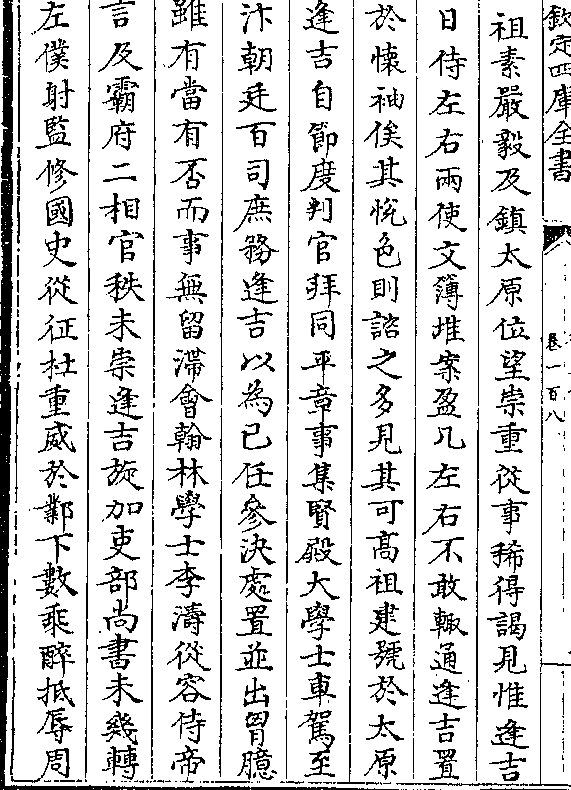 欽定四庫全書
卷一百八
祖素嚴毅及鎮太原位望崇重從事稀得謁見惟逢吉
日侍左右兩使文簿堆案盈几左右不敢輒通逢吉置
於懷袖俟其悅色則諮之多見其可高祖建號於太原
逢吉自節度判官拜同平章事集賢殿大學士車駕至
汴朝廷百司庶務逢吉以為己任參決處置並出胷臆
雖有當有否而事無留滯會翰林學士李濤從容侍帝
言及霸府二相官秩未崇逢吉旋加吏部尚書未幾轉
左僕射監修國史從征杜重威於鄴下數乘醉抵辱周